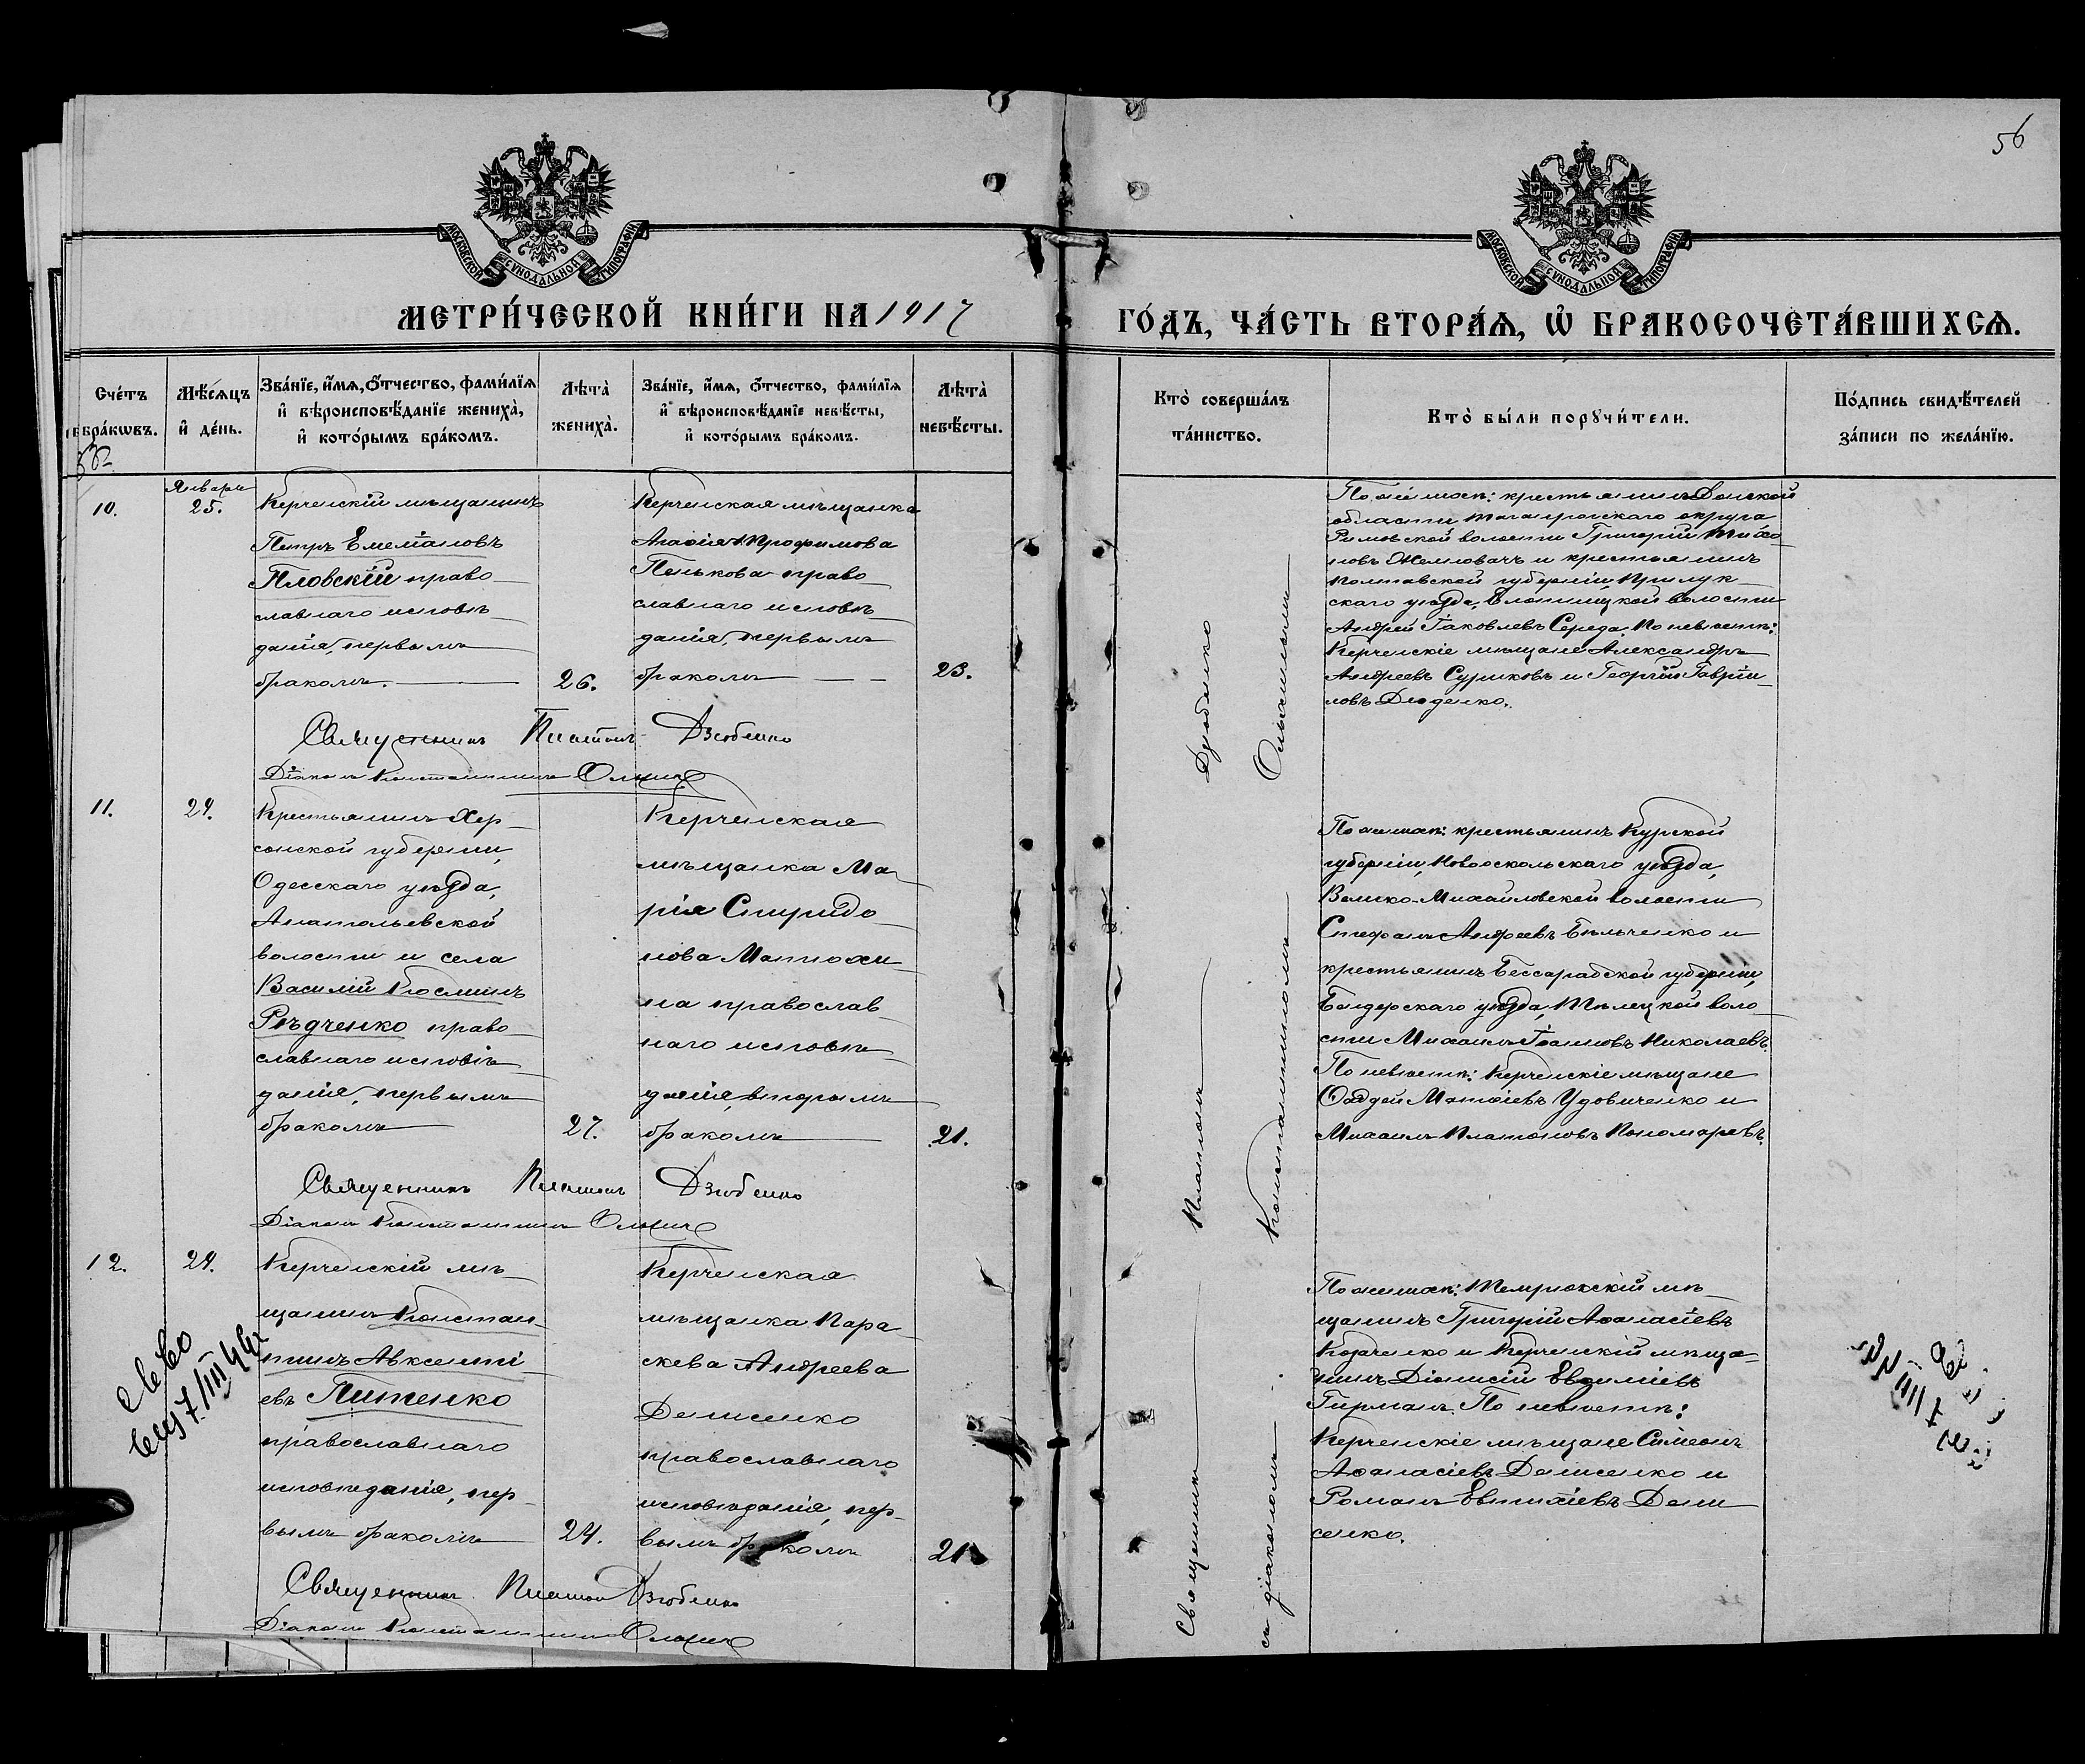 56
МОСКОВСКОЙ СѴНОДАЛЬНОЙ ТИПОГРАФІИ
МОСКОВСКОЙ СѴНОДАЛЬНОЙ ТИПОГРАФІИ
МЕТРИ́ЧЕСКОЙ КНИ́ГИ НА 1917
ГО́ДЪ, ЧА́СТЬ ВТОРА́Ѧ, Ѡ҆ БРАКОСОЧЕТА́ВШИХСѦ.
Сче́тъ
бра́кѡвъ.
Мѣ́сѧцъ
и҆ де́нь.
Зва́нїе, и҆́мѧ, о҆́тчество, фами́лїѧ
и҆ вѣроисповѣ́данїе жениха̀,
и҆ кото́рымъ бра́комъ.
Лѣта̀
жениха̀.
Зва́нїе, и҆́мѧ, о҆́тчество, фами́лїѧ
и҆ вѣроисповѣ́данїе невѣ́сты,
и҆ кото́рымъ бра́комъ.
Лѣта̀
невѣ́сты.
Кто̀ соверша́лъ
та́инство.
Кто̀ бы́ли порꙋчи́тели.
По́дпись свидѣ́телей
за́писи по жела́нїю.
10.
Января
25.
Керченскій мѣщанинъ
Петръ Емеліановъ
Пловскій право
славнаго исповѣ
данія, первымъ
бракомъ.
26.
Керченская мѣщанка
Агаѳія Трофимова
Пенькова право
славнаго исповѣ
данія, первымъ
бракомъ
23.
Священникъ Платонъ Дзюбенко
Діаконъ Константинъ
По женихѣ: крестьянинъ Донской
области Таганрогскаго округа
волости Григорій Тихо
новъ и крестьянинъ
Полтавской губерніи, Прилук
скаго уѣзда, волости
Андрей Іаковлевъ Середа. По невѣстѣ:
Керченскіе мѣщане Александръ
Андреевъ Суриковъ и Георгій Гаврии
ловъ
11.
24.
Крестьянинъ Хер
сонской губерніи,
Одесскаго уѣзда,
Анатольевской
волости и села
Василій Косминъ
Рѣдченко право
славнаго исповѣ
данія, первымъ
бракомъ
27.
Керченская
мѣщанка Ма
рія Спиридо
нова Матюхи
на православ
наго исповѣ
данія, вторымъ
бракомъ
21.
Священникъ Платонъ Дзюбенко
Діаконъ Константинъ
По женихѣ: крестьянинъ Курской
губерніи, Новооскольскаго уѣзда,
Велико-Михайловской волости
Стефанъ Андреевъ Бѣльченко и
крестьянинъ Бессарабской губерніи,
Бендерскаго уѣзда, воло
сти Михаилъ Іоанновъ Николаевъ.
По невѣстѣ: Керченскіе мѣщане
Ѳаддей Матѳіевъ Удовиченко и
Михаилъ Платоновъ Пономаревъ.
12.
24.
Керченскій мѣ
щанинъ Констан
тинъ Авксенті
евъ Питенко
православнаго
исповѣданія, пер
вымъ бракомъ
24.
Керченская
мѣщанка Пара
скева Андреева
Денисенко
православнаго
исповѣданія, пер
вымъ бракомъ
21
Священникъ Платонъ Дзюбенко
Діаконъ Константинъ
По женихѣ: Темрюкскій мѣ
щанинъ Григорій Аѳанасіевъ
Козаченко и Керченскій мѣща
нинъ Діонисій Евѳиміевъ
По невѣстѣ:
Керченскіе мѣщане Симеонъ
Аѳанасіевъ Денисенко и
Романъ Денн
сенко.
Священникъ Платонъ Дзюбенко
съ діакономъ Константиномъ